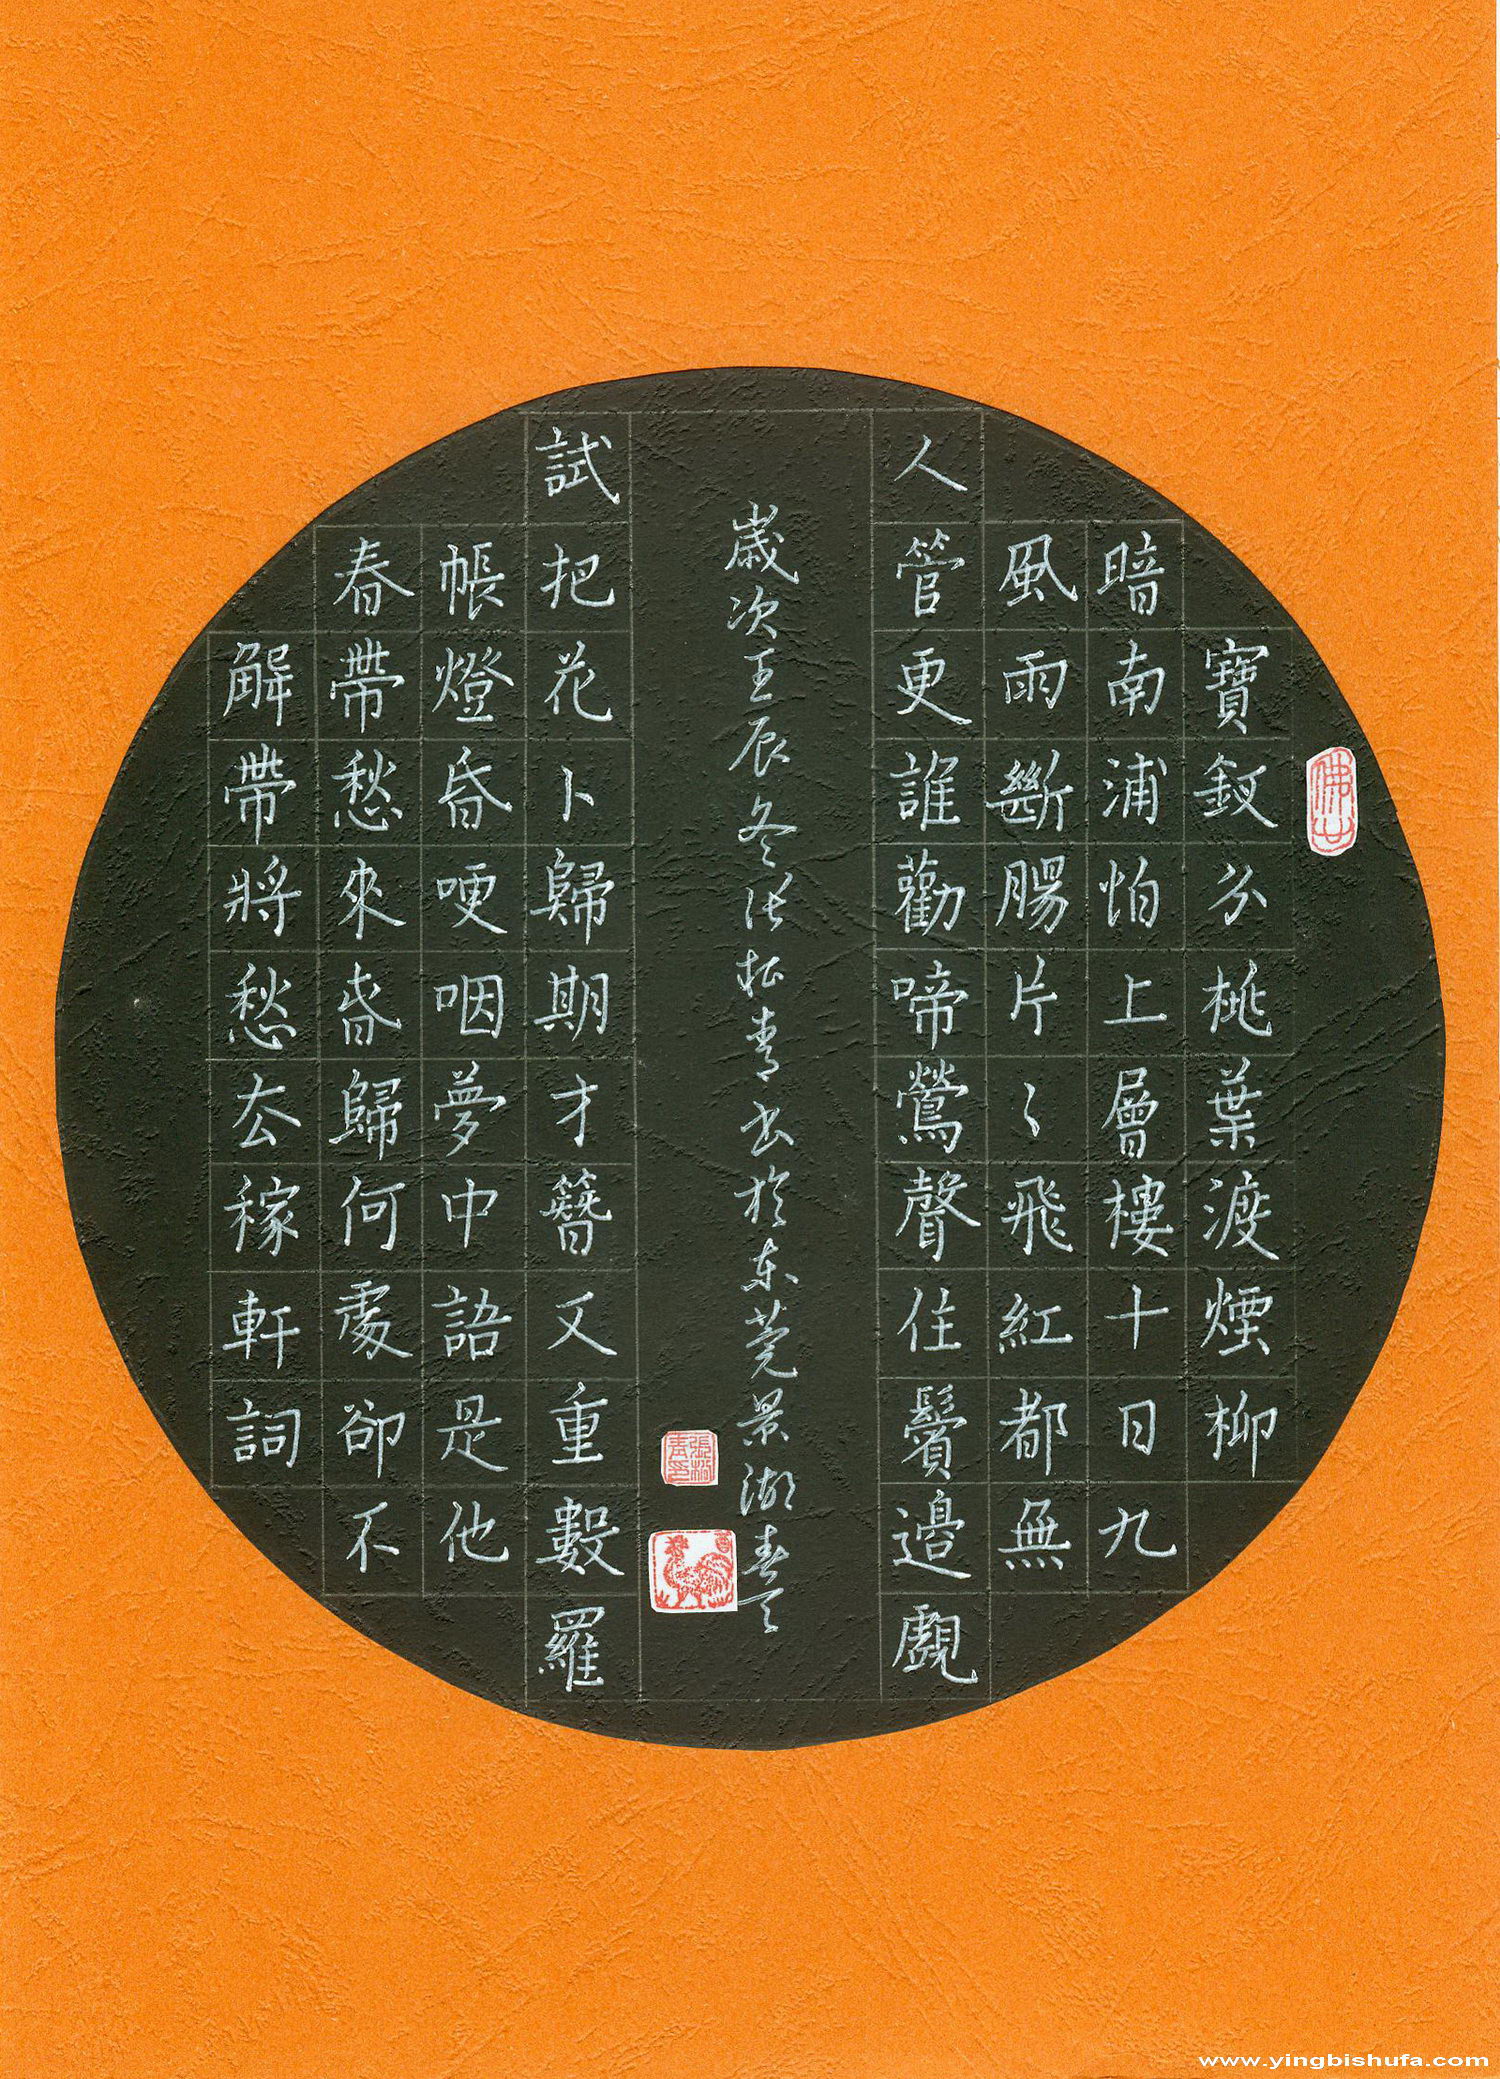 寶釵分桃葉渡煙柳
暗南浦怕上層樓十日九
風雨斷腸片〻飛紅都無
人管更誰勸啼鶯聲住鬢邊覷
試把花卜歸期才簪又重數羅
帳燈昏哽咽夢中語是他
春帶愁來春歸何處卻不
解帶將愁去稼軒詞
歲次壬辰冬张松青书於东莞景湖春天
佛山
張松青印
www.yingbishufa.com